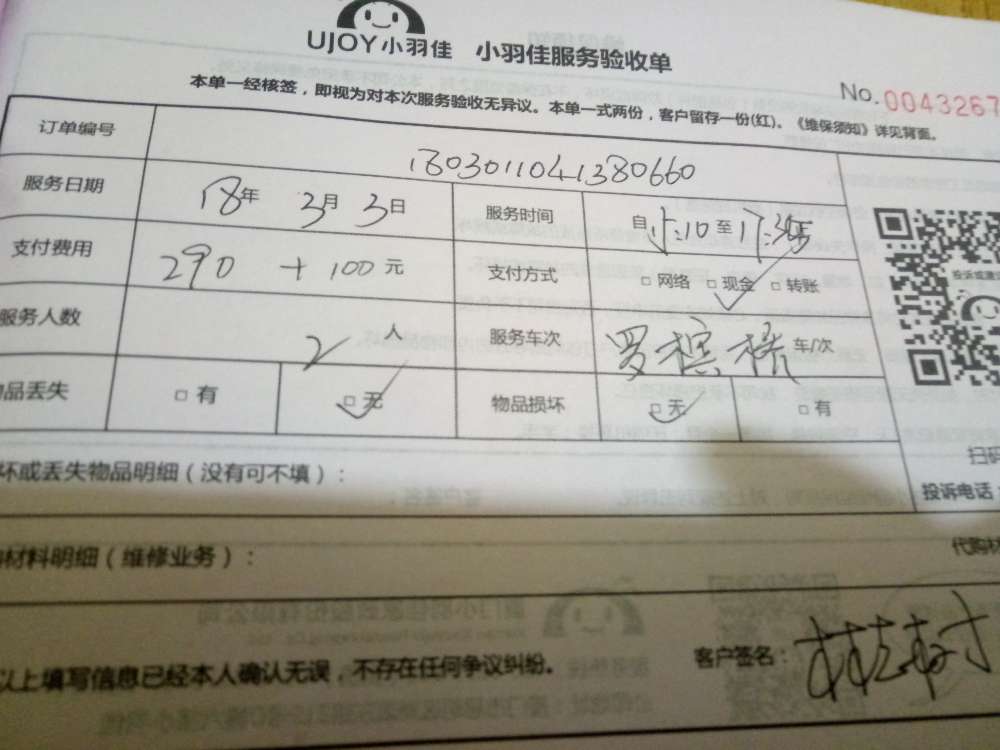 UJOY小羽佳 小羽佳服务验收单
No.0043267
本单一经核签，即视为对本次服务验收无异议。本单一式两份，客户留存一份(红)。《维保须知》详见背面。
订单编号 1803011041380660
服务日期 18年 3月 3日 服务时间 自 至
支付费用 290 + 100元 支付方式 □网络 □现金 □转账
服务人数 2人 服务车次 车/次
品丢失 □有 □无 物品损坏 □无 □有
坏或丢失物品明细（没有可不填）：
扫码
投诉电话：
材料明细（维修业务）：
代购材
以上填写信息已经本人确认无误，不存在任何争议纠纷。
客户签名：